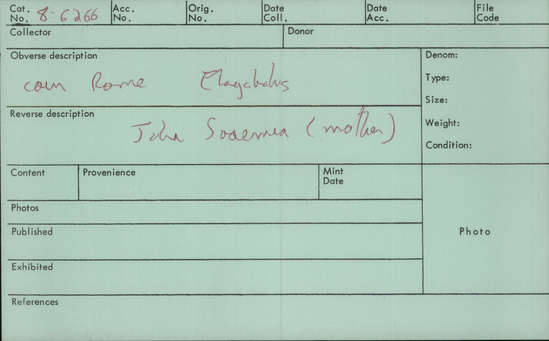 Cat. No. 8-6266 Acc. No. Orig. No. Date Coll. Date Acc. File Code
Collector Donor
Obverse description Denom:
coin Rome Elagabalus
Type:
Size:
Reverse description Weight:
Julia Soaemia (mother)
Condition:
Content Provenience Mint Date
Photos
Published Photo
Exhibited
References